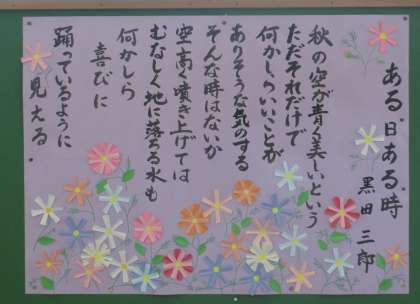 ある日ある時
黒田三郎
秋の空が青く美しいという
ただそれだけで
何かしらいいことが
ありそうな気のする
そんな時はないか
空高く噴き上げては
むなしく地に落ちる水も
何かしら
喜びに
踊っているように
見える